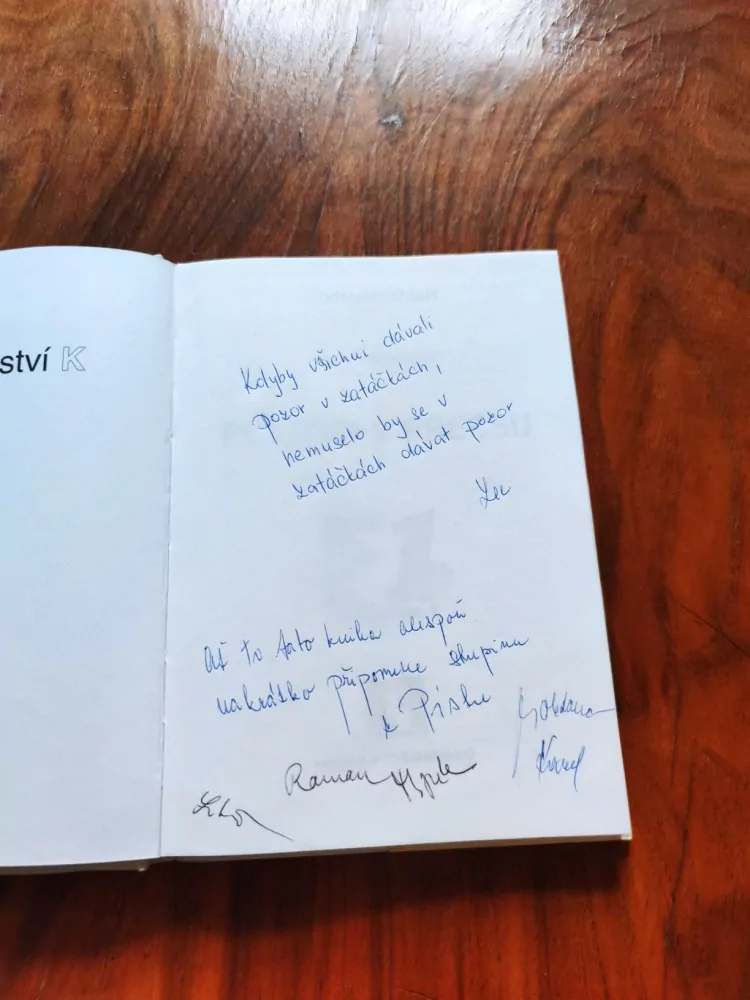 ství K
Kdyby všichni dávali
pozor v zatáčkách,
nemuselo by se v
zatáčkách dávat pozor
Ať to tato kniha alespoň
nakrátko připomene skupinu
z Písku
Roman